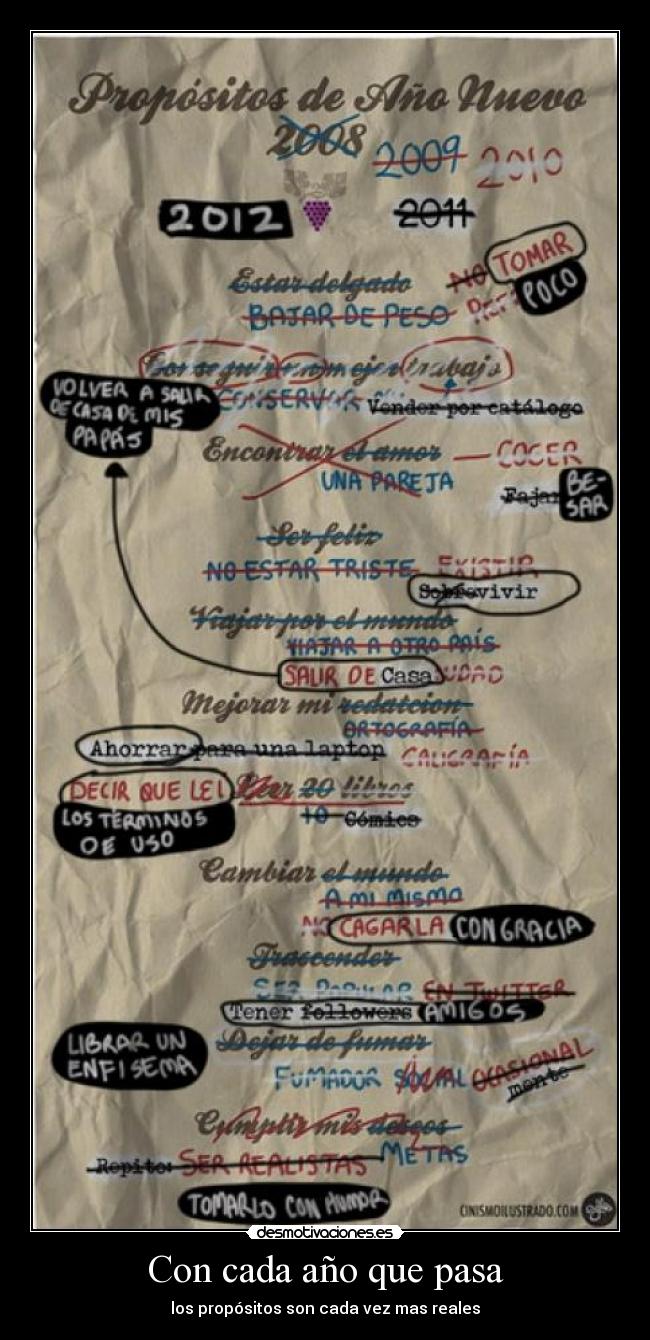 Propósitos de Año Nuevo
2008 2009 2010
2012 2011
Estar delgado NO TOMAR
BAJAR DE PESO POCO
Conseguir un mejor trabajo
VOLVER A SALIR
DE CASA DE MIS
PAPÁS
CONSERVAR Vender por catálogo
Encontrar el amor — COGER
UNA PAREJA Fajar BE-
SAR
Ser feliz
NO ESTAR TRISTE EXISTIR
Sobrevivir
Viajar por el mundo
VIAJAR A OTRO PAÍS
SALIR DE Casa UDAD
Mejorar mi redatcion
ORTOGRAFÍA
Ahorrar para una laptop CALIGRAFÍA
DECIR QUE LEÍ Leer 20 libros
LOS TÉRMINOS
DE USO
10 Cómics
Cambiar el mundo
A MI MISMO
NO CAGARLA CON GRACIA
Trascender
SER POPULAR EN TWITTER
Tener followers AMIGOS
LIBRAR UN
ENFISEMA
Dejar de fumar
FUMADOR SOCIAL OCASIONAL
mente
Cumplir mis deseos
Repito: SER REALISTAS METAS
TOMARLO CON HUMOR
CINISMOILUSTRADO.COM
desmotivaciones.es
Con cada año que pasa
los propósitos son cada vez mas reales